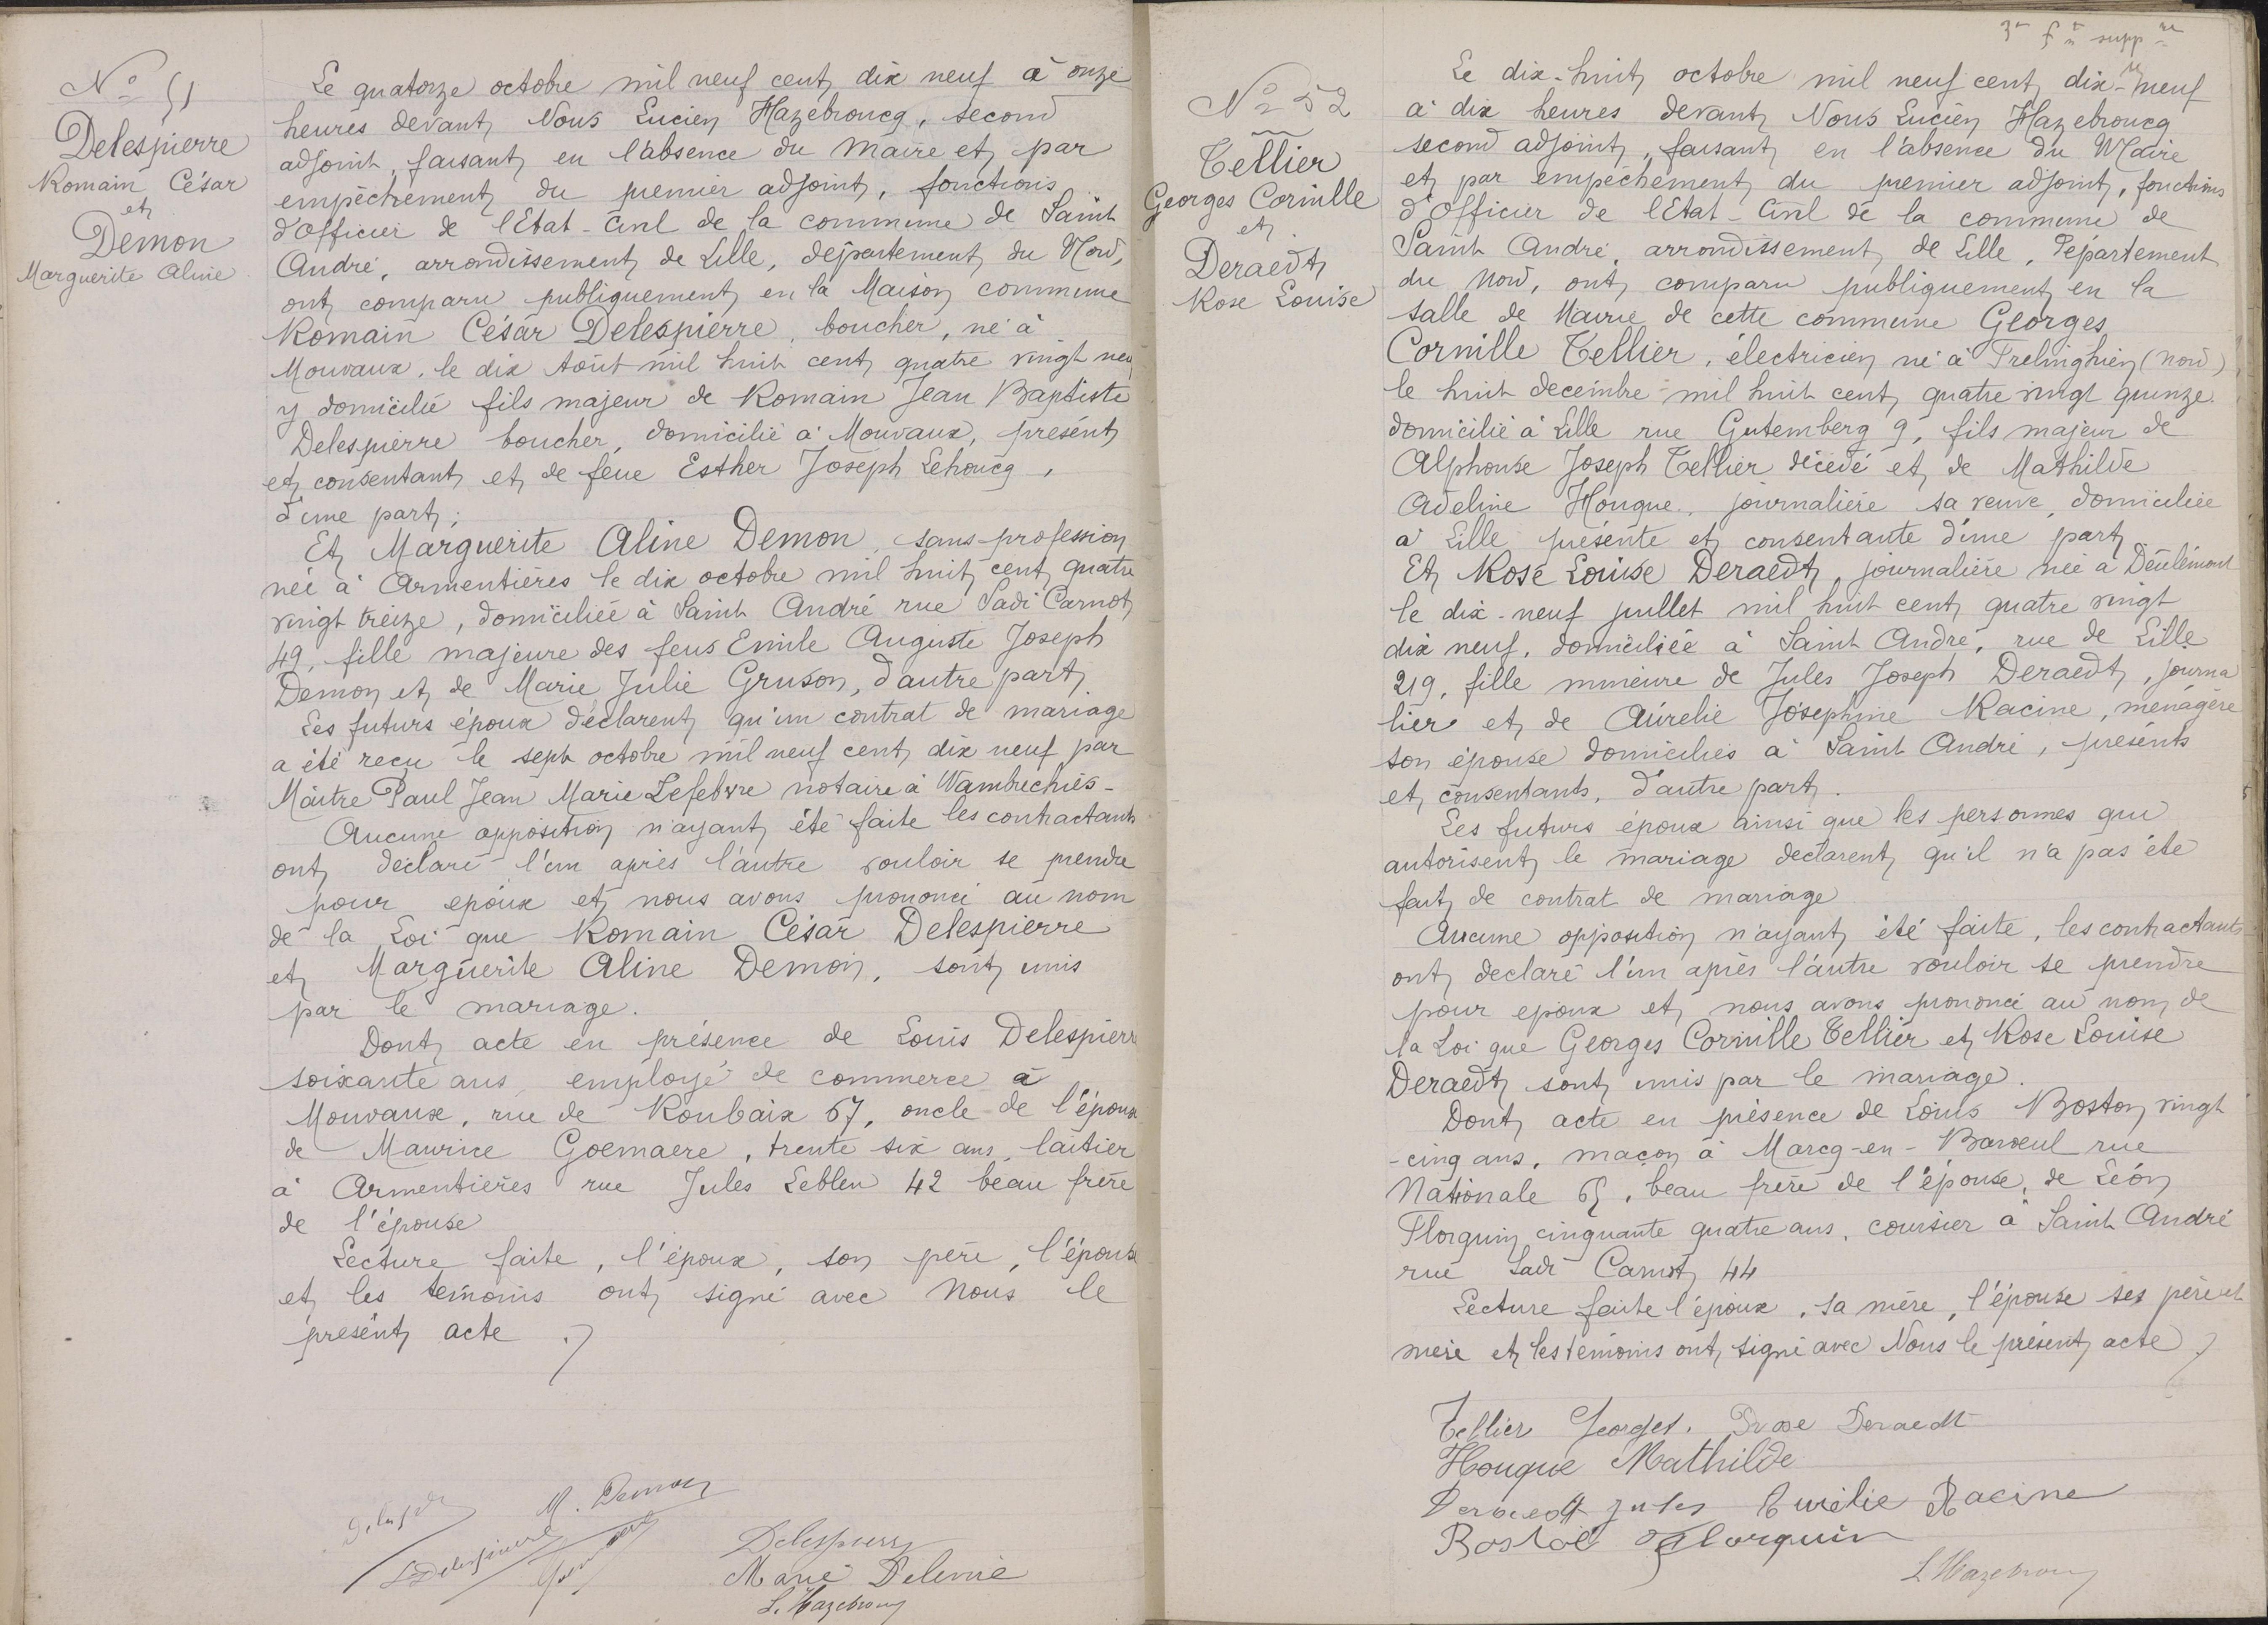 N° 51
Delespierre
Romain César
et
Demon
Marguerite Aline
Le quatorze octobre mil neuf cent dix neuf à onze
heures devant Nous Lucien Hazebroucq, second
adjoint, faisant en l'absence du Maire et par
empêchement du premier adjoint, fonctions
d'Officier de l'Etat-Civil de la commune de Saint
André, arrondissement de Lille, département du Nord,
ont comparu publiquement en la Maison commune
Romain César Delespierre, boucher, né à
Mouvaux, le dix Août mil huit cent quatre vingt neuf
y domicilié fils majeur de Romain Jean Baptiste
Delespierre boucher, domicilié à Mouvaux, présent
et consentant et de feue Esther Joseph Lehoucq,
d'une part;
Et Marguerite Aline Demon, sans profession
née à Armentières le dix octobre mil huit cent quatre
vingt treize, domiciliée à Saint André rue Sadi Carnot
49, fille majeure des feus Emile Auguste Joseph
Demon et de Marie Julie Gruson, d'autre part.
Les futurs époux déclarent qu'un contrat de mariage
a été reçu le sept octobre mil neuf cent dix neuf par
Maître Paul Jean Marie Lefebvre notaire à Wambrechies-
Aucune opposition n'ayant été faite les contractants
ont déclaré l'un après l'autre vouloir se prendre
pour époux et nous avons prononcé au nom
de la Loi que Romain César Delespierre
et Marguerite Aline Demon, sont unis
par le mariage.
Dont acte en présence de Louis Delespierre
soixante ans employé de commerce à
Mouvaux, rue de Roubaix 67, oncle de l'époux
de Maurice Goemaere, trente six ans, laitier
à Armentières rue Jules Lebleu 42 beau frère
de l'épouse
Lecture faite, l'époux, son père, l'épouse
et les témoins ont signé avec Nous le
présent acte ./
M. Demon
L Delespierre
Delespierre
Marie
L. Hazebroucq
N° 52
Tellier
Georges Cornille
et
Deraedt
Rose Louise
Le dix-huit octobre mil neuf cent dix-neuf
à dix heures devant Nous Lucien Hazebroucq
second adjoint, faisant en l'absence du Maire
et par empêchement du premier adjoint, fonctions
d'Officier de l'Etat-Civil de la commune de
Saint André, arrondissement de Lille, département
du Nord, ont comparu publiquement en la
salle de Mairie de cette commune Georges
Cornille Tellier, électricien né à Frelinghien (Nord)
le huit decembre mil huit cent quatre vingt quinze
domicilié à Lille rue Gutemberg 9, fils majeur de
Alphonse Joseph Tellier décédé et de Mathilde
Adeline Houque, journalière sa veuve, domiciliée
à Lille présente et consentante d'une part
Et Rose Louise Deraedt, journalière née à Deûlémont
le dix-neuf juillet mil huit cent quatre vingt
dix neuf, domiciliée à Saint André, rue de Lille
219, fille mineure de Jules Joseph Deraedt, journa
lier et de Aurelie Joséphine Racine, ménagère
son épouse domiciliés à Saint André, présents
et consentants, d'autre part.
Les futurs époux ainsi que les personnes qui
autorisent le mariage déclarent qu'il n'a pas été
fait de contrat de mariage
Aucune opposition n'ayant été faite, les contractants
ont declaré l'un après l'autre vouloir se prendre
pour epoux et nous avons prononcé au nom de
la Loi que Georges Cornille Tellier et Rose Louise
Deraedt sont unis par le mariage.
Dont acte en présence de Louis Boston vingt
-cinq ans, maçon à Marcq-en-Baroeul rue
Nationale 65, beau frère de l'épouse, de Léon
Florquin cinquante quatre ans, coursier à Saint André
rue Sadi Carnot 44
Lecture faite l'époux, sa mère, l'épouse ses père et
mère et les témoins ont signé avec Nous le présent acte ./
Tellier Georges. Rose Deraedt
Houque Mathilde
Deraedt Jules Aurélie Racine
Florquin
L Hazebroucq